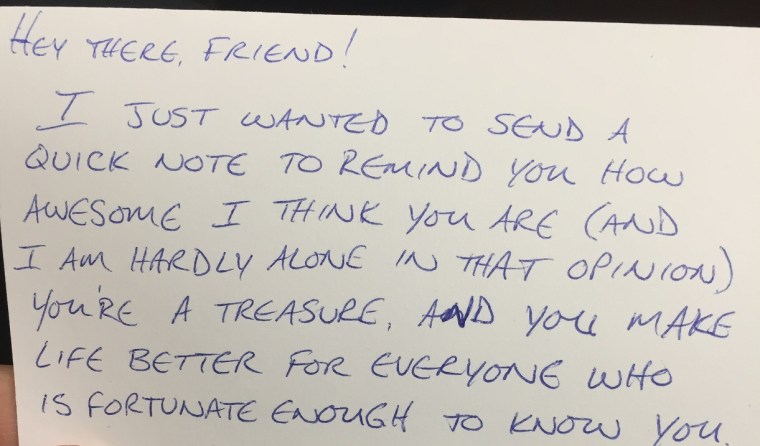 HEY THERE, FRIEND!
I JUST WANTED TO SEND A
QUICK NOTE TO REMIND YOU HOW
AWESOME I THINK YOU ARE (AND
I AM HARDLY ALONE IN THAT OPINION)
YOU'RE A TREASURE, AND YOU MAKE
LIFE BETTER FOR EVERYONE WHO
IS FORTUNATE ENOUGH TO KNOW YOU.